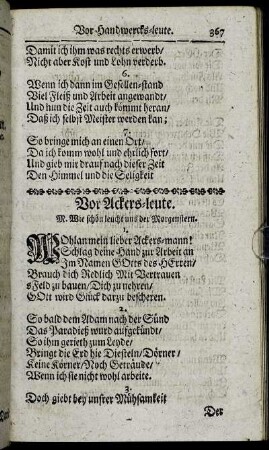 Vor Handwercks-leute. 367
Damit ich ihm was rechts erwerb/
Nicht aber Kost und Lohn verderb.
6.
Wenn ich dann im Gesellen-stand
Viel Fleiß und Arbeit angewandt/
Und nun die Zeit auch kömmt heran/
Daß ich selbst Meister werden kan;
7.
So bringe mich an einen Ort/
Da ich komm wohl und ehrlich fort/
Und gieb mir drauf nach dieser Zeit
Den Himmel und die Seligkeit
Vor Ackers-leute.
M. Wie schön leucht uns der Morgenstern.
1.
WOhlan mein lieber Ackers-mann!
Schlag deine Hand zur Arbeit an
Im Namen GOttes des HErren/
Brauch dich Redlich Mit Vertrauen
's Feld zu bauen/ Dich zu nehren/
GOtt wird Glück darzu bescheren.
2.
So bald dem Adam nach der Sünd
Das Paradieß wurd aufgekündt/
So ihm gerieth zum Leyde/
Bringt die Erd hie Diesteln/ Dörner/
Keine Körner/ Noch Geträude/
Wenn ich sie nicht wohl arbeite.
3.
Doch giebt bey unsrer Mühsamkeit
Der